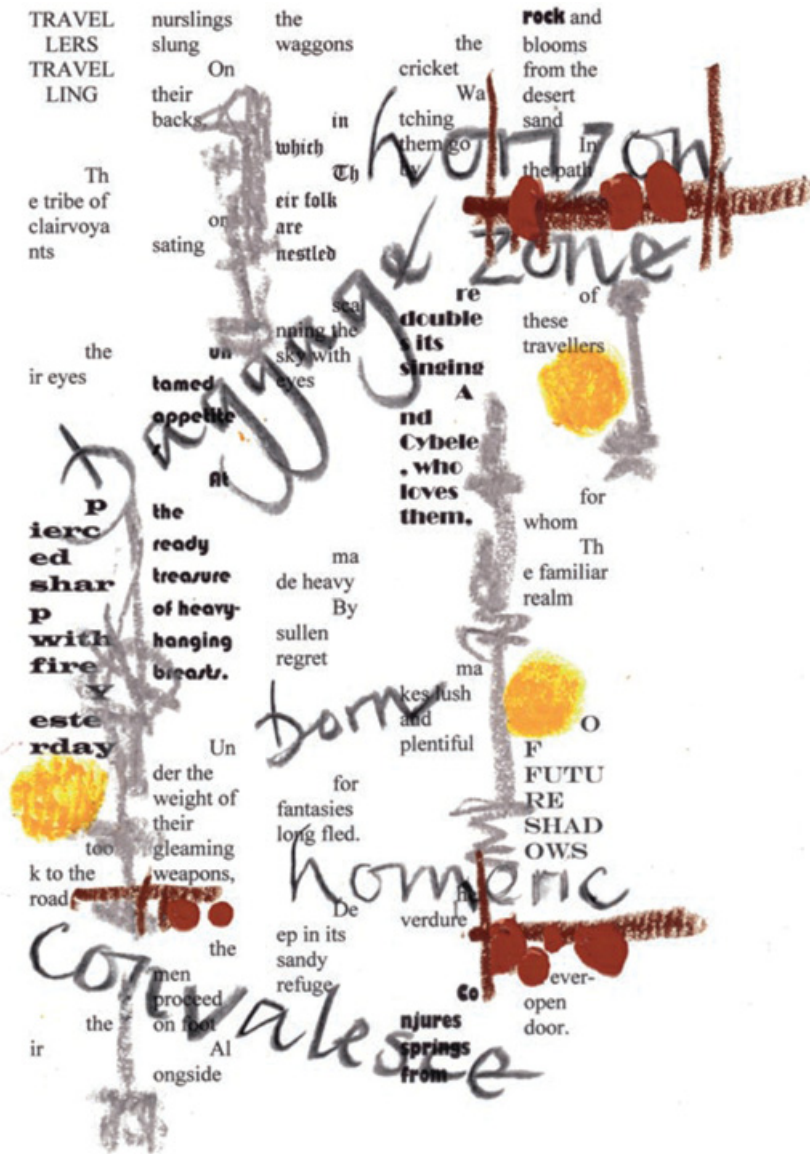 TRAVEL
LERS
TRAVEL
LING
Th
e tribe of
clairvoya
nts
the
ir eyes
p
ierc
ed
shar
p
with
fire
Y
este
rday
too
k to the
road
the
ir
nurslings
slung
On
their
backs,
or
sating
un
tamed
appetite
At
the
ready
treasure
of heavy-
hanging
breasts.
Un
der the
weight of
their
gleaming
weapons,
the
men
proceed
on foot
Al
ongside
the
waggons
in
which
Th
eir folk
are
nestled
sca
nning the
sky with
eyes
ma
de heavy
By
sullen
regret
for
fantasies
long fled.
De
ep in its
sandy
refuge
the
cricket
Wa
tching
them go
by
re
double
s its
singing
A
nd
Cybele
, who
loves
them,
ma
kes lush
and
plentiful
verdure
Co
njures
springs
from
rock and
blooms
from the
desert
sand
In
the path
of
these
travellers
for
whom
Th
e familiar
realm
O
F
FUTU
RE
SHAD
OWS
ever-
open
door.
horizon
zone
born
homeric
convalesce